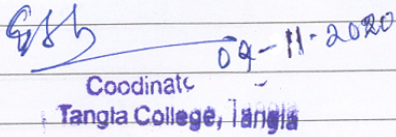 09-11-2020
Coodinato
Tangla College, Tangla